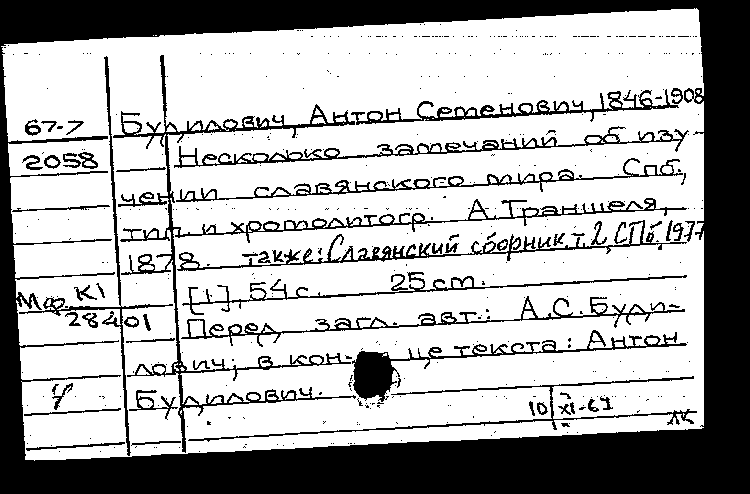 67-7 Будилович, Антон Семенович, 1846-1908
2058 Несколько замечаний об изу-
чении славянского мира. Спб.,
тип. и хромолитогр. А. Траншеля,
1878. также: Славянский сборник, т. 2, СПб, 1977
Мф. К1 [1], 54 с. 25 cm.
28401 Перед загл. авт.: А.С. Буди-
лович; в кон- це текста: Антон
Будилович.
10/XI-69